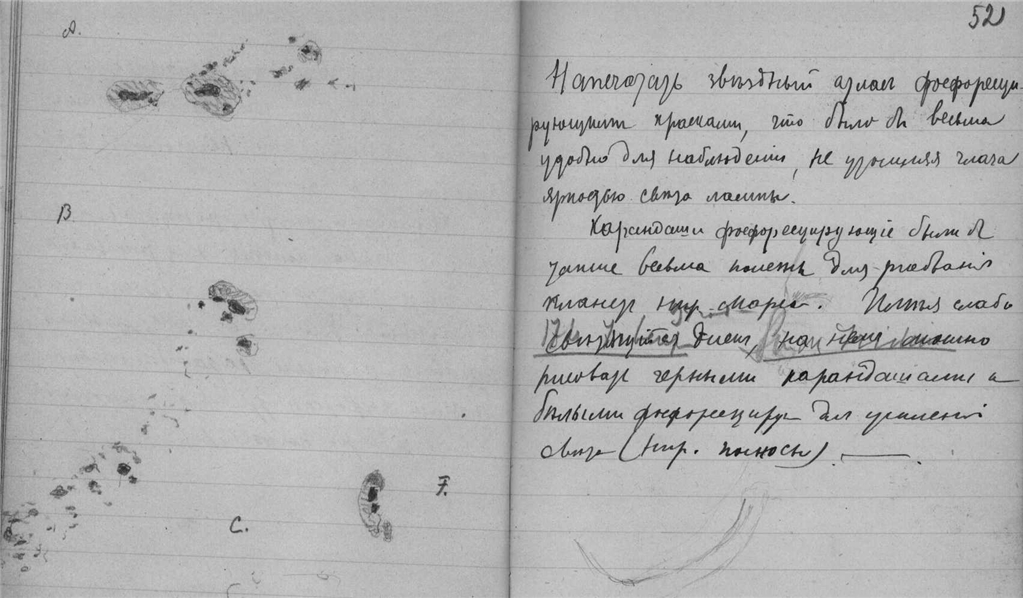 A.
B.
C.
F.
52
Напечатать звѣздный атлас фосфоресци-
рующими красками, что было бы весьма
удобно для наблюденій, не утомляя глаза
яркостью свѣта лампы.
Карандаши фосфоресцирующіе были б
также весьма полезн для рисованія
планет нпр. Марса. Имѣя слабо
диск, на нем можно
рисовать черными карандашами и
бѣлыми фосфоресцир для усиленія
свѣта (нпр. полюсы).